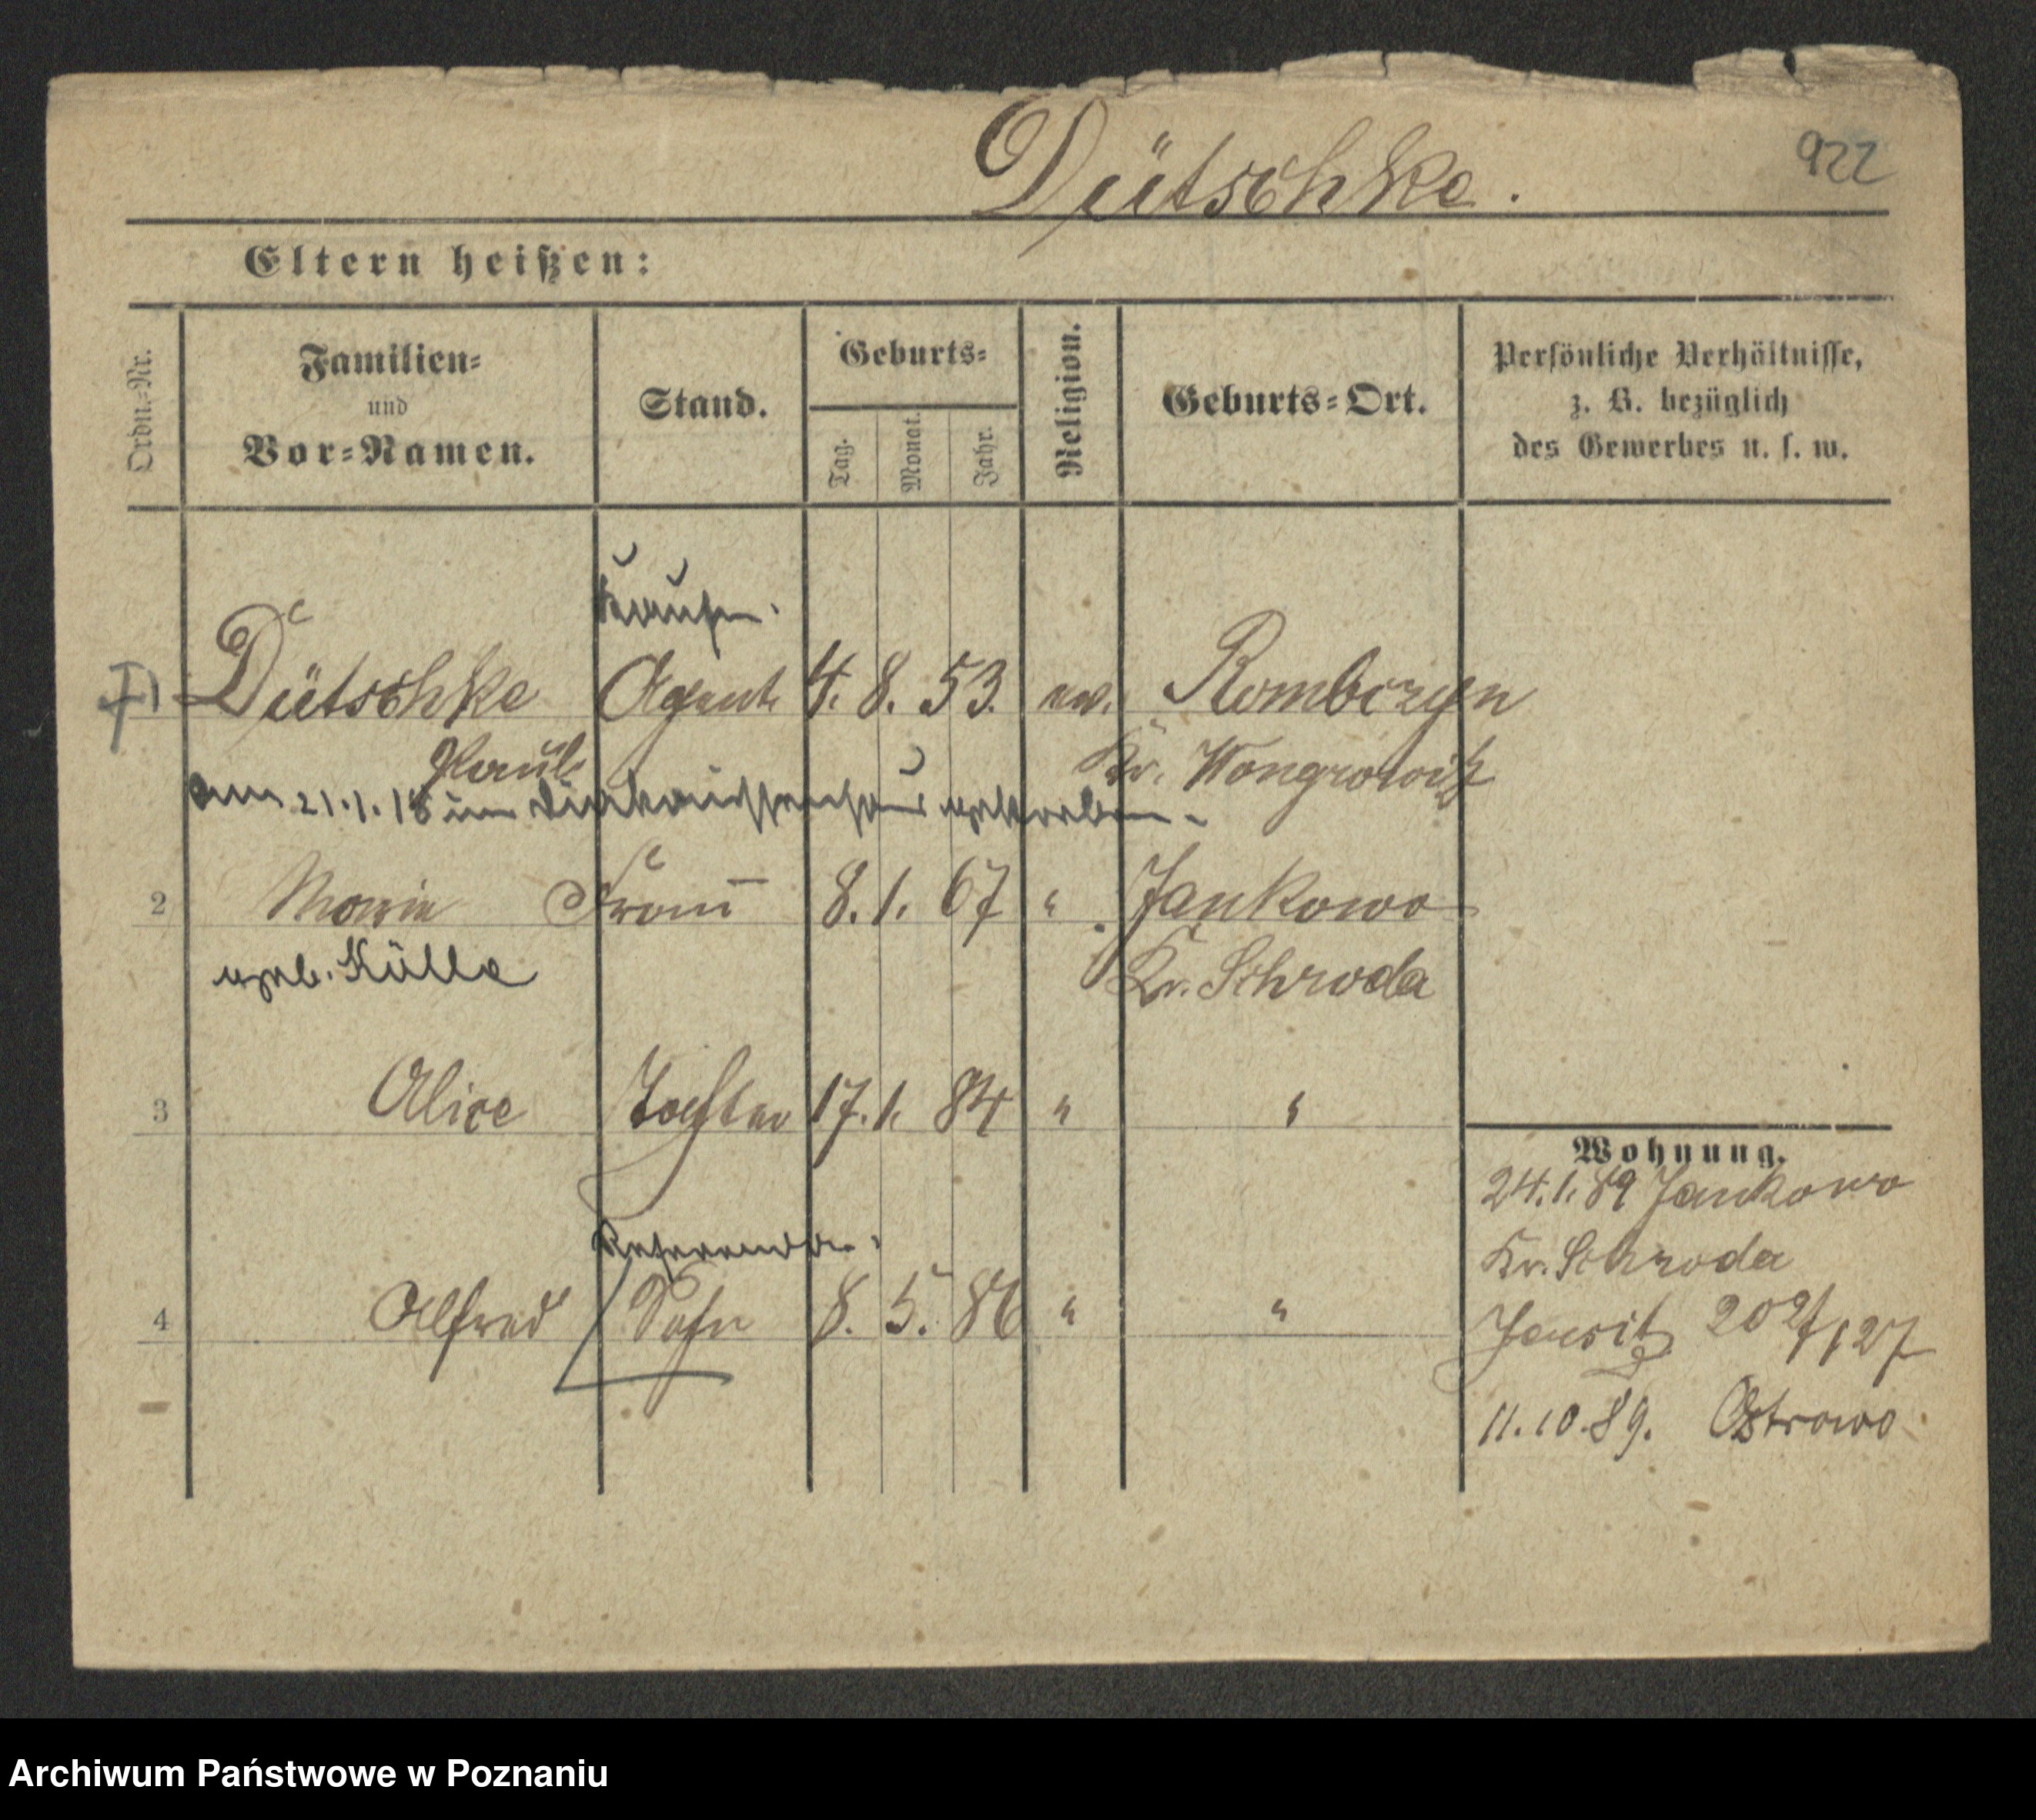 922
Dütschke.
Eltern heißen:
Ordn.-Nr.
Familien-
und
Vor-Namen.
Stand.
Geburts-
Tag.
Monat.
Jahr.
Religion.
Geburts-Ort.
Persönliche Verhältnisse,
z. B. bezüglich
des Gewerbes u. s. w.
Kaufm.
1 Dütschke Agent 4. 8. 53. ev. Rombczyn
Paul Kr. Wongrowitz
am 21.1.18 im Diakonissenhaus gestorben.
2 Maria Frau 8. 1. 67 " Jankowo
geb. Külle Kr. Schroda
3 Alice Tochter 17. 1. 84 " "
Referendar.
4 Alfred Sohn 8. 5. 86 " "
Wohnung.
24.1.89 Jankowo
Kr. Schroda
Jersitz 127
11.10.89. Ostrowo
Archiwum Państwowe w Poznaniu